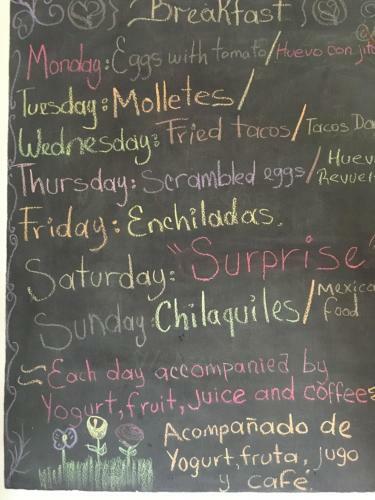 Breakfast
Monday: Eggs with tomato/Huevo con jito
Tuesday: Molletes/
Wednesday: Fried tacos/Tacos Do
Thursday: Scrambled eggs/Huev
Revuel
Friday: Enchiladas.
Saturday: "Surprise"
Sunday: Chilaquiles/Mexica
food
~Each day accompanied by
Yogurt, fruit, Juice and coffee
Acompañado de
Yogurt, fruta, jugo
y café